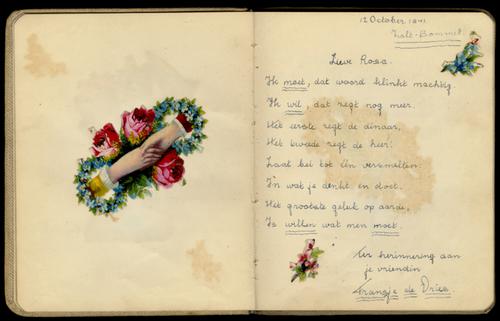 12 October 1941
Zalt-Bommel
Lieve Rosa.
Ik moet, dat woord klinkt machtig.
Ik wil, dat zegt nog meer.
Het eerste zegt de dinaar,
Het tweede zegt de heer.
Laat bei tot één versmelten
In wat je denkt en doet.
Het grootste geluk op aarde,
Is willen wat men moet.
Ter herinnering aan
je vriendin
Fransje de Vries